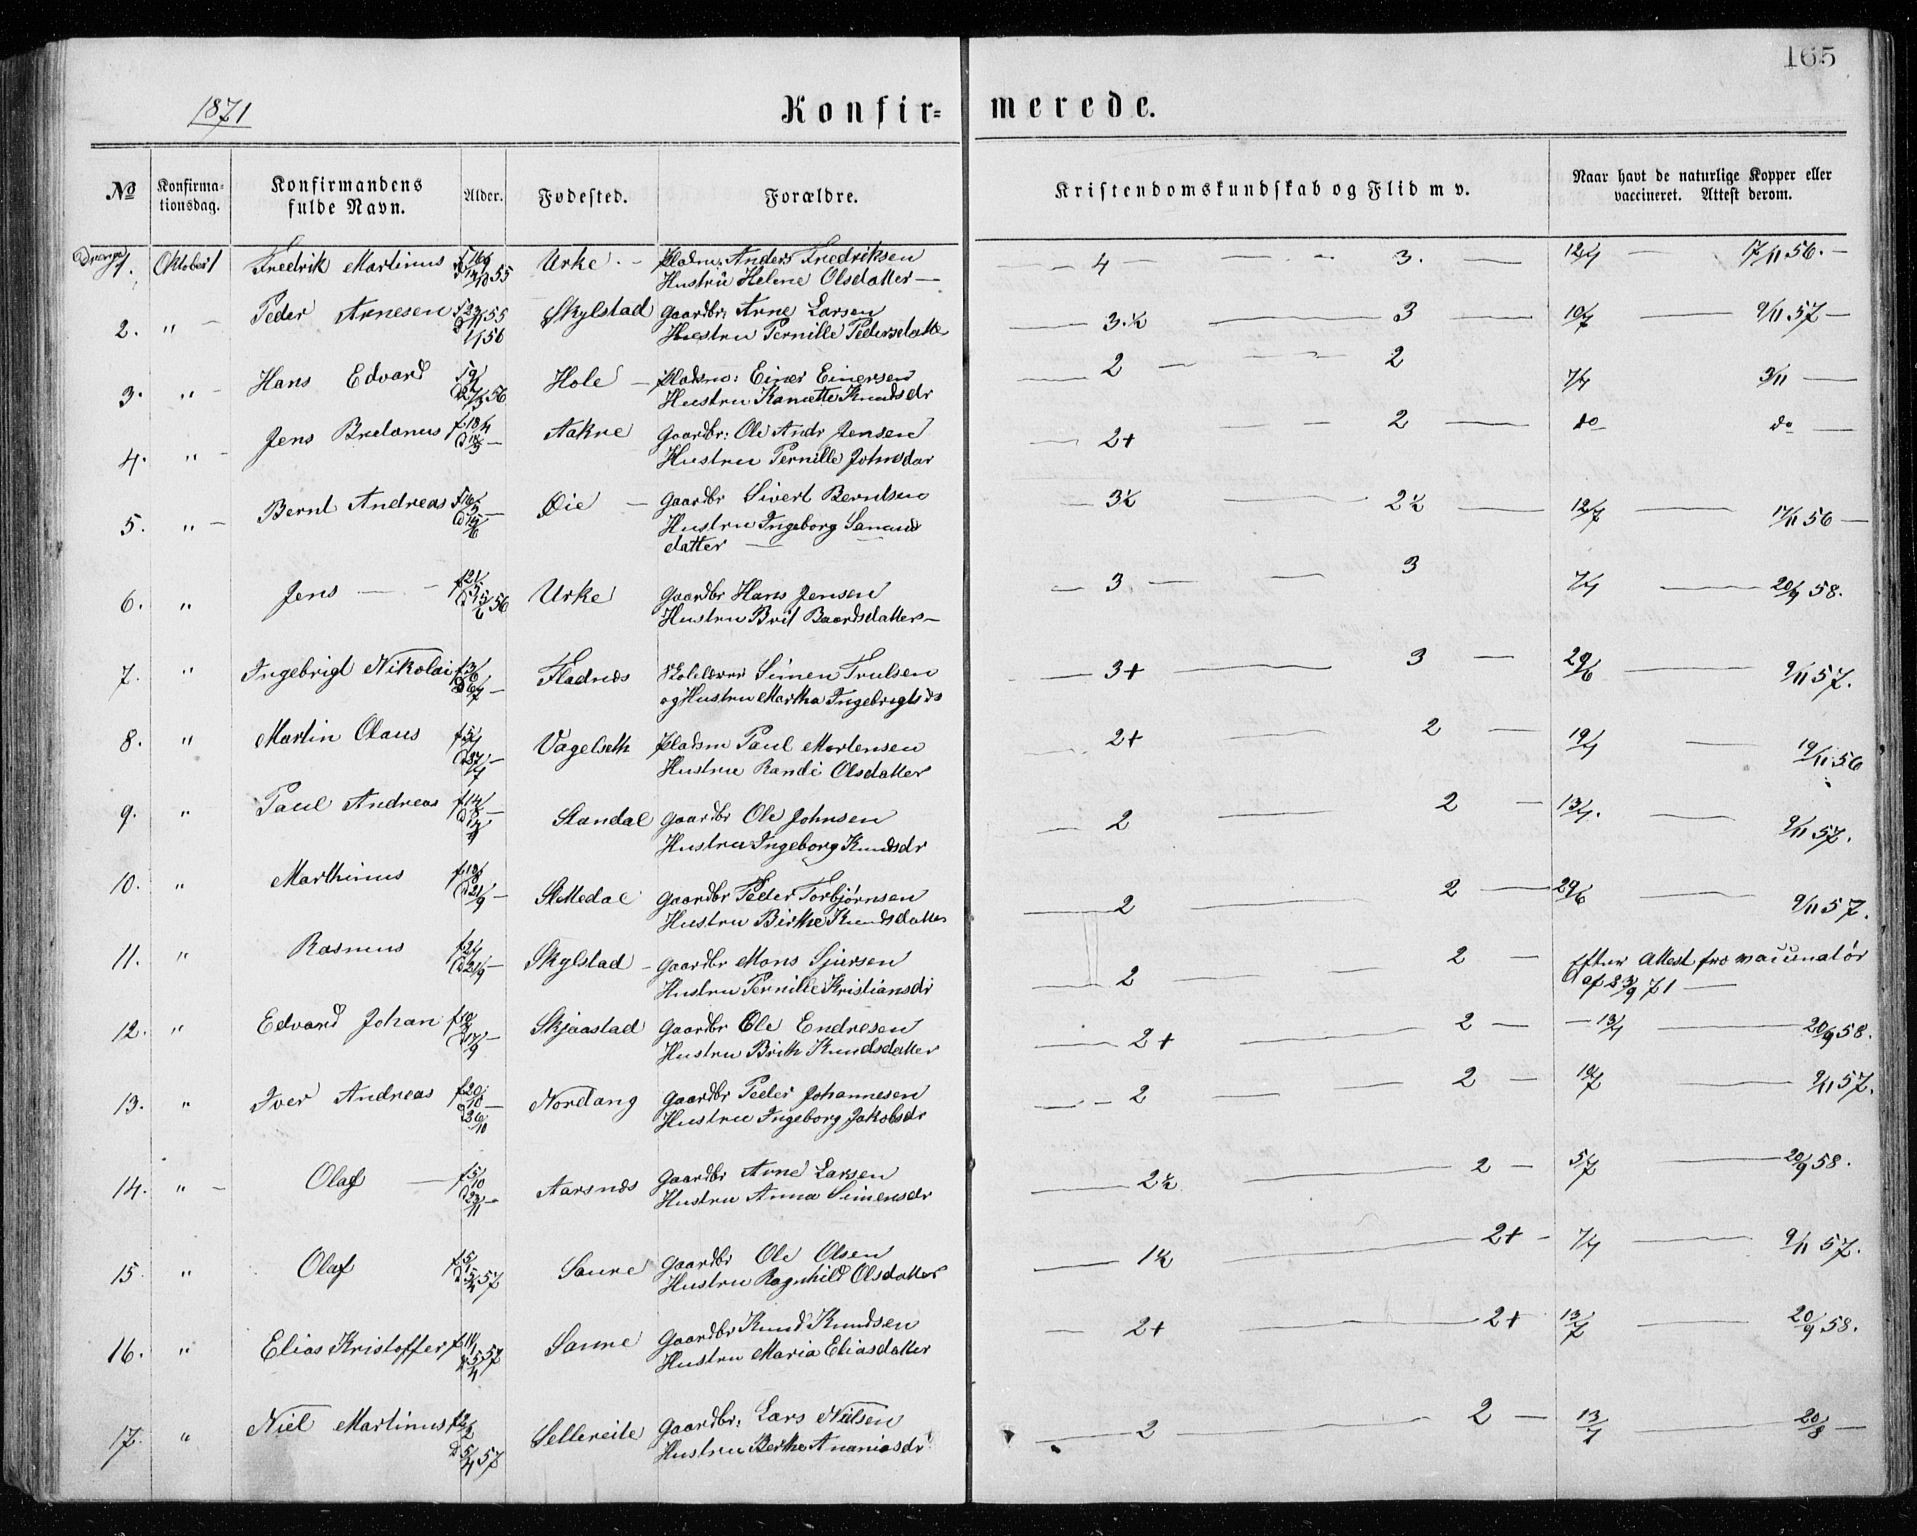 165
1871
Konfir= merede.
No Konfirma-tionsdag. Konfirmandens fulde Navn. Alder. Fødested. Forældre. Kristendomskundskab og Flid m v. Naar havt de naturlige Kopper eller vaccineret. Attest derom.
Drenge 1. Oktober 1 Fredrik Martinus 55 Urke Pladsm. Anders Fredriksen 4 3. 17/11 56.
Hustru Helene Olsdatter
2. " Peder Arnesen 55 Skylstad Gaardbr. Arne Larsen 3.½ 3 9/11 57
56 Hustru Pernille Pedersdatter
3. " Hans Edvard 56 Hole Pladsm: Einer Einersen 2 2 3/11
Hustru Knudsdr
4. " Jens Aakre Gaardbr: Ole Andr Jensen 2+ 2 do do
Hustru Pernille Johnsdar
5. " Bernt Andreas Øie Gaardbr Sivert Berntsen 3½ 2½ 12/7 17/11 56
Hustru Ingeborg
datter
6. " Jens 56 Urke Gaardbr Hans Jensen 3 3 20/9 58.
Hustru Brit Baardsdatter
7. " Ingebrigt Nikolai Fladnes Simen Trulsen 3+ 3 29/6 9/11 57.
og Hustru Martha Ingebrigtsds
8. " Martin Olaus Vagelseth Pladsm Paul Mortensen 2+ 2 19/11 56
Hustru Randi Olsdatter
9. " Paul Andreas Standal Gaardbr Ole Johnsen 2 2 9/11 57.
Hustru Ingeborg Knudsdr
10. " Marthinus Gaardbr Peder Torbjørnsen 2 2 29/6 9/11 57.
Hustru Birthe Knudsdatter
11. " Rasmus Skylstad Gaardbr Mons Sjursen 2 2 Efter Attest fra vaccinatør
Hustru Pernille Kristiansdr af 23/9 71
12. " Edvard Johan Skjaastad Gaardbr Ole Endresen 2+ 2 20/9 58.
Hustru Brith Knudsdatter
13. " Iver Andreas 20/10 26/10 Nordang Gaardbr Peder Johannesen 2 2 9/11 57.
Hustru Ingeborg Jakobsdr
14. " Olaf 5/10 Aarsnes Gaardbr Arne Larsen 2½ 2 5/7 20/9 58.
Hustru Anna Simensdr
15 " Olaf 5/4 57 Saure Gaardbr Ole Olsen 1½ 2+ 9/11 57.
Hustru Ragnhild Olsdatter
16. " Elias Kristoffer 5/4 57 Saure Gaardbr Knud Knudsen 2+ 2+ 13/7 20/9 58.
Hustru Maria Eliasdatter
17. " Niel Martinus 5/4 57 Sellereite Gaardbr. Lars Nilsen 2 2 20/8
Hustru Berthe Ananiasdr